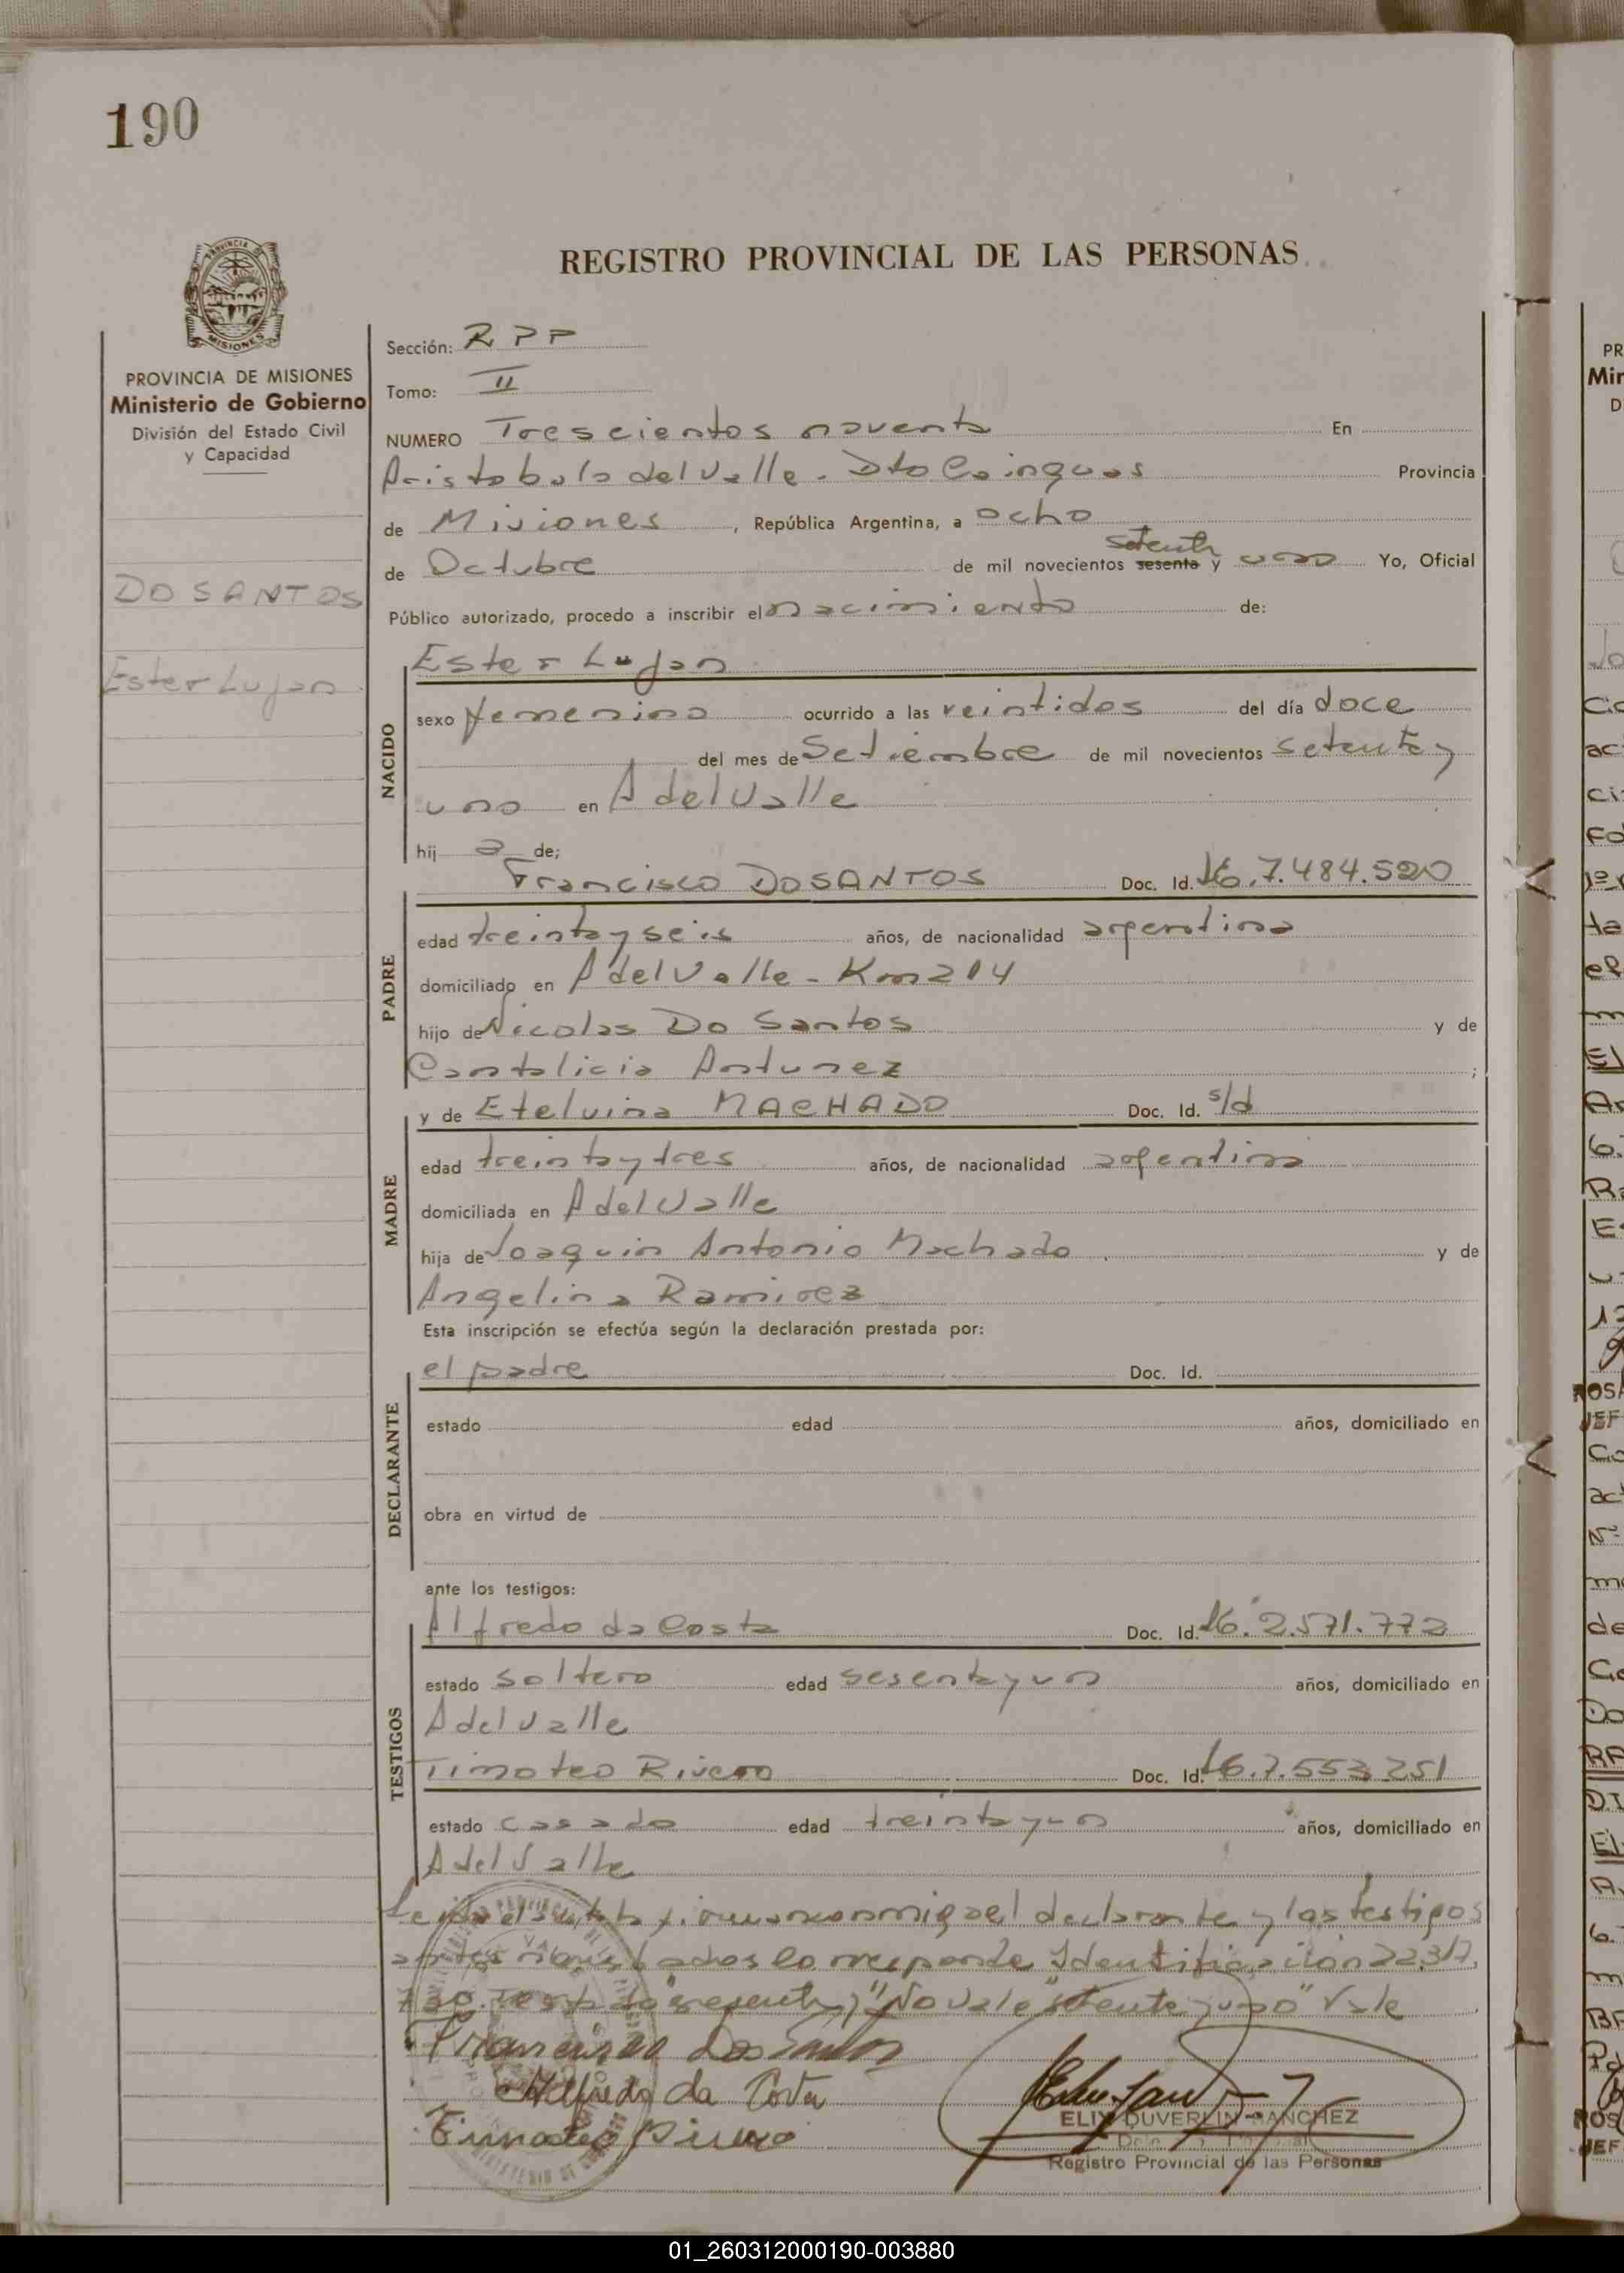 190
REGISTRO PROVINCIAL DE LAS PERSONAS
PROVINCIA DE MISIONES
Ministerio de Gobierno
División del Estado Civil
y Capacidad
DO SANTOS
Ester Lujan
Sección: RPP
Tomo: II
NUMERO Trescientos noventa En
Aristobulo del Valle - Dto Cainguas Provincia
de Misiones, República Argentina, a ocho
setenta
de Octubre de mil novecientos sesenta y uno Yo, Oficial
Público autorizado, procedo a inscribir el nacimiento de:
NACIDO
Ester Lujan
sexo femenino ocurrido a las veintidos del día doce
del mes de Setiembre de mil novecientos setenta y
uno en A del Valle
hij a de;
PADRE
Francisco DOSANTOS Doc. Id. 7.484.520
edad treinta y seis años, de nacionalidad argentina
domiciliado en A del Valle - Km 214
hijo de Nicolas Do Santos y de
Cantalicia Antunez ;
MADRE
y de Etelvina MACHADO Doc. Id. s/d
edad treinta y tres años, de nacionalidad argentina
domiciliada en A del Valle
hija de Joaquin Antonio Machado y de
Angelina Ramirez
Esta inscripción se efectúa según la declaración prestada por:
DECLARANTE
el padre Doc. Id.
estado edad años, domiciliado en
obra en virtud de
ante los testigos:
TESTIGOS
Alfredo da Costa Doc. Id. 2.571.772
estado soltero edad sesenta y un años, domiciliado en
A del Valle
Timoteo Rivero Doc. Id. 7.553.251
estado casado edad treinta y un años, domiciliado en
A del Valle
el declarante y los testigos
Identificación
No vale "setenta y uno" Vale
Francisco Do Santos
Alfredo da Costa
Timoteo Rivero
ELIX DUVERLIN SANCHEZ
Registro Provincial de las Personas
01_260312000190-003880